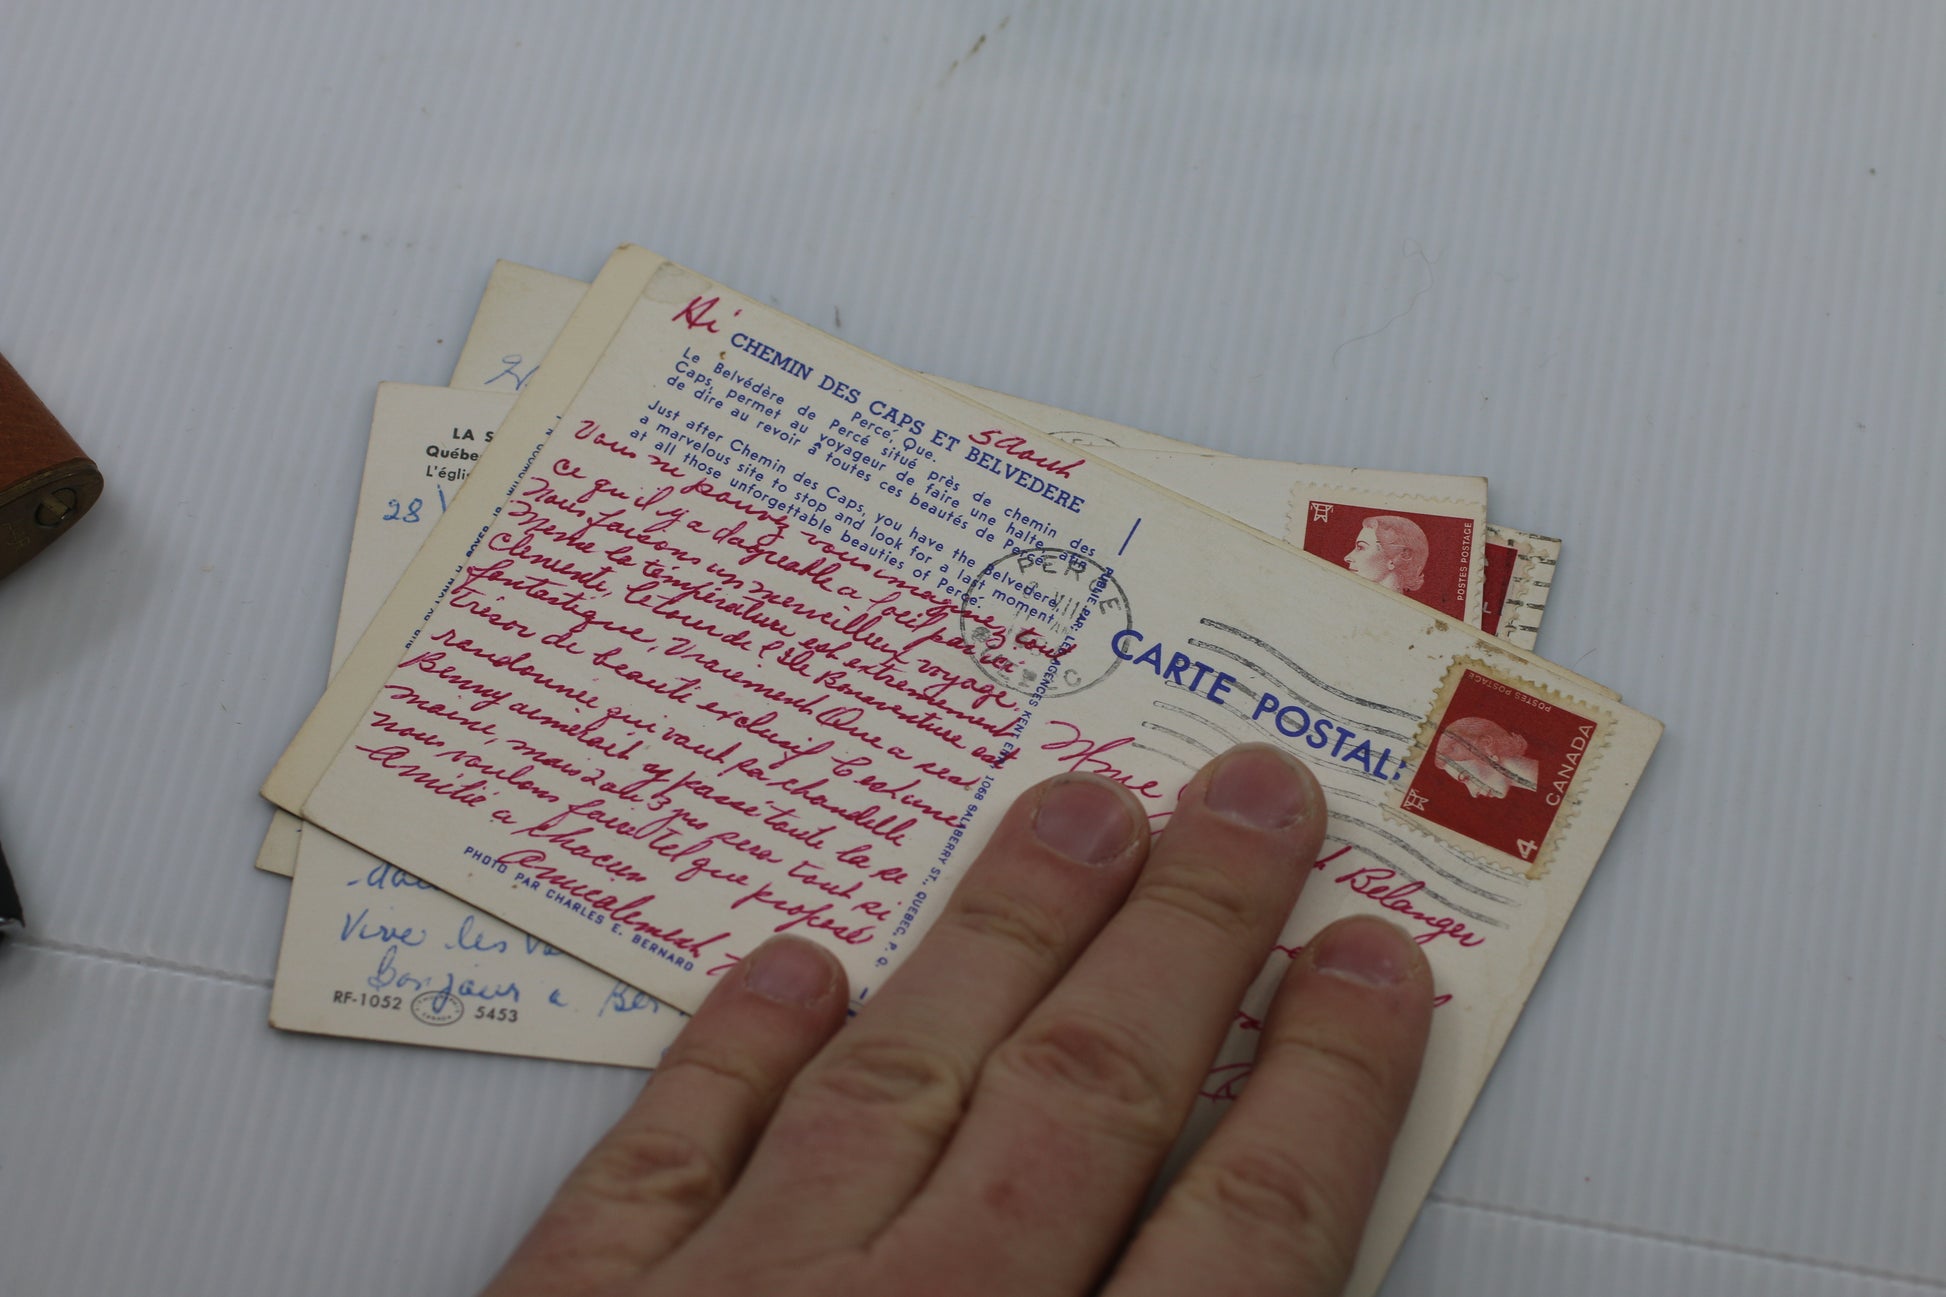 Hi
CHEMIN DES CAPS ET BELVEDERE
Percé, Que.
Le Belvédère de Percé situé près de chemin des
Caps, permet au voyageur de faire une halte afin
de dire au revoir à toutes ces beautés de Percé.
Just after Chemin des Caps, you have the Belvedere,
a marvelous site to stop and look for a last moment
at all those unforgettable beauties of Percé.
5 Aouh
Vous ne pouvez vous imaginez tout
ce qu'il y a d'agréable a loei par ici
Nous faisons un merveilleux voyage.
Meme la température est extremement
Clemente, le tour de l'Ile Bonaventure est
fantastique, vraiment Que a ses
trésor de beauté exclusif C'est une
randonnée qui vaut sa chandelle
Benny aimerait y passé toute la se
maine, mais 2 ou 3 jrs sera tout si
nous voulons faire tel que proposé
Amitié a chacun
Amicalement
PHOTO PAR CHARLES E. BERNARD
PUBLIE PAR: LES AGENCES KENT ENR. 1068 SALABERRY ST., QUEBEC, P. Q.
PERCE
QUEBEC
CARTE POSTAL
Mme
Belanger
POSTES POSTAGE
CANADA
4
POSTES POSTAGE
LA S
Québe
L'égli
28
Vive les
Bonjour a Ber
RF-1052
5453